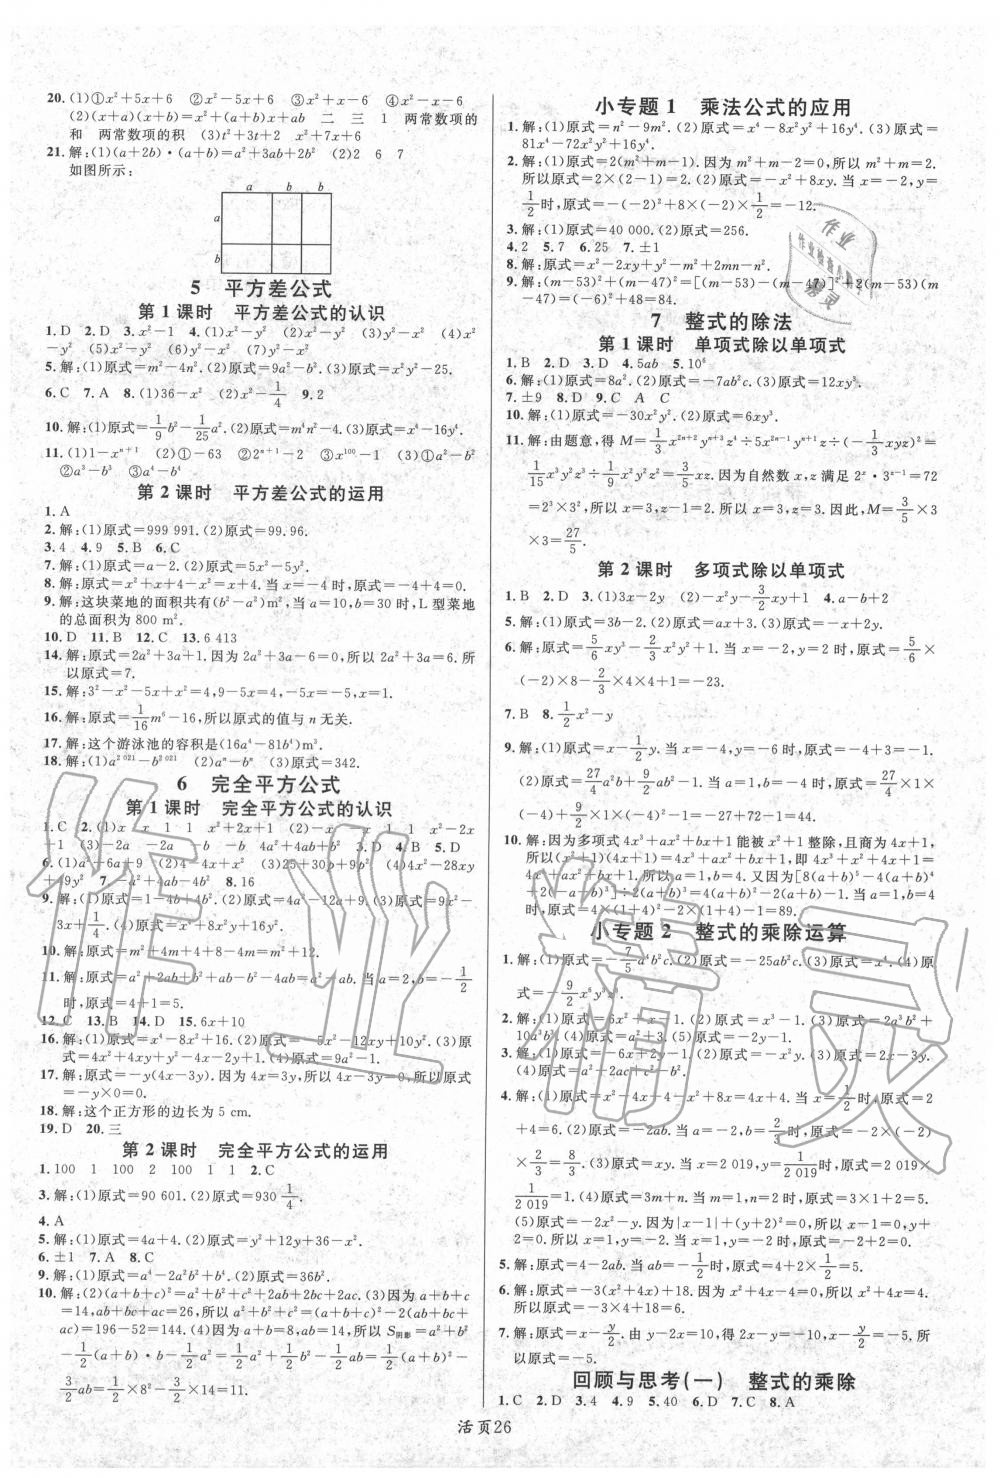 20. (1)①x²+5x+6 ②x²-5x+6 ③x²+x-6 ④x²-x-6
(2)(x+a)(x+b)=x²+(a+b)x+ab 二 三 1 两常数项的
和 两常数项的积 (3)t²+3t+2 x²+7x+6
21. 解:(1)(a+2b)·(a+b)=a²+3ab+2b² (2)2 6 7
如图所示:
a b b
a
b
5 平方差公式
第1课时 平方差公式的认识
1. D 2. D 3. x²-1 4. (1)x²-y² (2)x²-y² (3)y²-x² (4)x²-
y² (5)x²-y² (6)x²-y²
5. 解:(1)原式=m²-4n². (2)原式=9a²-b². (3)原式=4x²-25.
6. C 7. A 8. (1)36-x² (2)x²-1/4 9. 2
10. 解:(1)原式=1/9b²-1/25a². (2)原式=m⁴n²-4. (3)原式=-4x²-y².
11. (1)1-xⁿ⁺¹ (2)①-63 ②2ⁿ⁺¹-2 ③x¹⁰⁰-1 (3)①a²-b²
②a³-b³ ③a⁴-b⁴
第2课时 平方差公式的运用
1. A
2. 解:(1)原式=999 991. (2)原式=99.96.
3. 4 4. 9 5. B 6. C
7. 解:(1)原式=a-2. (2)原式=b². (3)原式=5x²-5y².
8. 解:原式=x²+x+4-x²=x+4. 当x=-4时,原式=-4+4=0.
9. 解:这块菜地的面积共有(b²-a²)m²,当a=10,b=30时,L型菜地
的总面积为800 m².
10. D 11. B 12. C 13. 6 413
14. 解:原式=2a²+3a+1. 因为2a²+3a-6=0,所以2a²+3a=6. 所
以原式=7.
15. 解:3²-x²-5x+x²=4,9-5x=4,-5x=-5,x=1.
16. 解:原式=1/16m⁶-16,所以原式的值与n无关.
17. 解:这个游泳池的容积是(16a⁴-81b⁴)m³.
18. 解:(1)a²⁰²¹-b²⁰²¹ (2)aⁿ-bⁿ (3)原式=342.
6 完全平方公式
第1课时 完全平方公式的认识
1. C 2. (1)x x 1 1 x²+2x+1 (2)-x -x 1 1 x²-2x
-1 (3)-2a -2a -b -b 4a²+4ab+b² 3. D 4. B 5. D
6. (1)a²+6a+9 (2)4-4x+x² (3)25+30b+9b² (4)4x²-28xy
+49y² 7. -a²+4ab-4b² 8. 16
9. 解:(1)原式=1-4b+4b². (2)原式=4a²-12a+9. (3)原式=9x²-
3x+1/4. (4)原式=x²+8xy+16y².
10. 解:原式=m²+4m+4+8-4m=m²+12.
11. 解:原式=a²+2ab+b²+ab-b²-3ab=a². 当a=2,b=-1/2
时,原式=4+1=5.
12. C 13. B 14. D 15. 6x+10
16. 解:(1)原式=x⁴-8x²+16. (2)原式=-5x²-12xy+10y². (3)原
式=4x²+4xy+y²-4x-2y+1. (4)原式=9a²-1.
17. 解:(1)原式=-xy+y². (2)原式=-y(x-y). 因为x-y=0,所以原式
=-y×0=0.
18. 解:这个正方形的边长为5 cm.
19. D 20. 三
第2课时 完全平方公式的运用
1. 100 1 100 2 100 1 1 2. C
3. 解:(1)原式=90 601. (2)原式=930 1/4.
4. A
5. 解:(1)原式=4a+4. (2)原式=y²+12y+36-x².
6. ±1 7. A 8. C
9. 解:(1)原式=a⁴-2a²b²+b⁴. (2)原式=36b².
10. 解:(2)(a+b+c)²=a²+b²+c²+2ab+2bc+2ac. (3)因为a+b+c
=14,ab+bc+ac=26,所以a²+b²+c²=(a+b+c)²-2(ab+bc+
ac)=196-52=144. (4)因为a+b=8,ab=14,所以S阴影=a²+b²
-1/2(a+b)·b-1/2a²=1/2a²+1/2b²-1/2ab=1/2(a+b)²-
3/2ab=1/2×8²-3/2×14=11.
小专题1 乘法公式的应用
1. 解:(1)原式=n²-9m². (2)原式=x⁴-8x²y²+16y⁴. (3)原式=
81x⁴-72x²y²+16y⁴.
2. 解:(1)原式=2(m²+m-1). 因为m²+m-2=0,所以m²+m=2.
所以原式=2×(2-1)=2. (2)原式=-x²+8xy. 当x=-2,y=
1/2时,原式=-(-2)²+8×(-2)×1/2=-12.
3. 解:(1)原式=40 000. (2)原式=256.
4. 2 5. 7 6. 25 7. ±1
8. 解:原式=x²-2xy+y²-m²+2mn-n².
9. 解:(m-53)²+(m-47)²=[(m-53)-(m-47)]²+2(m-53)(m
-47)=(-6)²+48=84.
7 整式的除法
第1课时 单项式除以单项式
1. B 2. D 3. D 4. 5ab 5. 10⁶
6. 解:(1)原式=8a². (2)原式=-7ab²c². (3)原式=12xy⁵.
7. ±9 8. D 9. C A C
10. 解:(1)原式=-30x²y². (2)原式=6xy³.
11. 解:由题意,得M=1/3x²ⁿ⁺²yⁿ⁺³z⁴÷5x²ⁿ⁻¹yⁿ⁺¹z÷(-1/3xyz)²=
1/15x³y²z³÷1/9x²y²z²=3/5xz. 因为自然数x,z满足2ᶻ·3ˣ⁻¹=72
=2³×3²,所以z=3,x-1=2. 所以x=3. 因此,M=3/5×3
×3=27/5.
第2课时 多项式除以单项式
1. B 2. D 3. (1)3x-2y (2)-x²-3/2xy+1 4. a-b+2
5. 解:(1)原式=3b-2. (2)原式=ax+3. (3)原式=-x+2y.
6. 解:原式=5/6xy³-2/3x²y²+1. 当x=-2,y=2时,原式=5/6×
(-2)×8-2/3×4×4+1=-23.
7. B 8. 1/2x²-y
9. 解:(1)原式=x-1/2y. 当x=-3,y=-4时,原式=-3-1/2×(-4)=-1.
(2)原式=27/4a²b+9/2ab²-b-1. 当a=1,b=-4时,原式=27/4×1×
(-4)+9/2×1×(-4)²-(-4)-1=-27+72+4-1=48.
10. 解:因为多项式4x³+ax²+bx+1能被x²+1整除,且商为4x+1,
所以(x²+1)(4x+1)=4x³+ax²+bx+1,即4x³+x²+4x+1=
4x³+ax²+bx+1,所以a=1,b=4. 又因为[8(a+b)⁵-4(a+b)⁴
+2(-a-b)³]÷2(a+b)³=4(a+b)²-2(a+b)-1. 当a=1,b=4
时,原式=4×(1+4)²-2×(1+4)-1=89.
小专题2 整式的乘除运算
1. 解:(1)原式=-7/5a⁴b²c. (2)原式=-25ab²c. (3)原式=x⁴. (4)原
式=-9/2x⁶y³z⁵.
2. 解:(1)原式=6x²-x-2. (2)原式=x³-1. (3)原式=2a³b²+
10a³b³. (4)原式=a+3. (5)原式=-2y-1.
3. 解:(1)原式=-6x+2y-1. (2)原式=x-y. (3)原式=2x-3y.
(4)原式=c³+a²c.
4. 解:(1)原式=x²-4x+4-x²=-4x+4. 当x=-1/2时,原式=
6. (2)原式=a²-b²+a²+2ab+b²-2a²=2ab. 当a=2,b=2/3时,原式=2×2
×2/3=8/3. (3)原式=xy. 当x=2 019,y=1/2 019时,原式=2 019×
1/2 019=1. (4)原式=3m+1. 当m=2时,原式=3×2+1=7.
(5)原式=-2x+8y. 因为|x-1|+(y+2)²=0,所以x=1,y=-2. 所以原式=-18.
5. 解:原式=4-2ab. 当ab=-1/2时,原式=4+2×1/2=5.
6. 解:原式=3(x²+4x)+18. 因为x²+4x-4=0,所以x²+4x=4.
所以原式=3×4+18=6.
7. 解:原式=x-y/2. 由y-2x=10,得2x-y=-10,x-y/2=-5. 所以
原式=-5.
回顾与思考(一) 整式的乘除
1. C 2. D 3. 4 4. 9 5. 40 6. D 7. C 8. A
活页26
作业精灵
作业
作业检查小助手
精灵